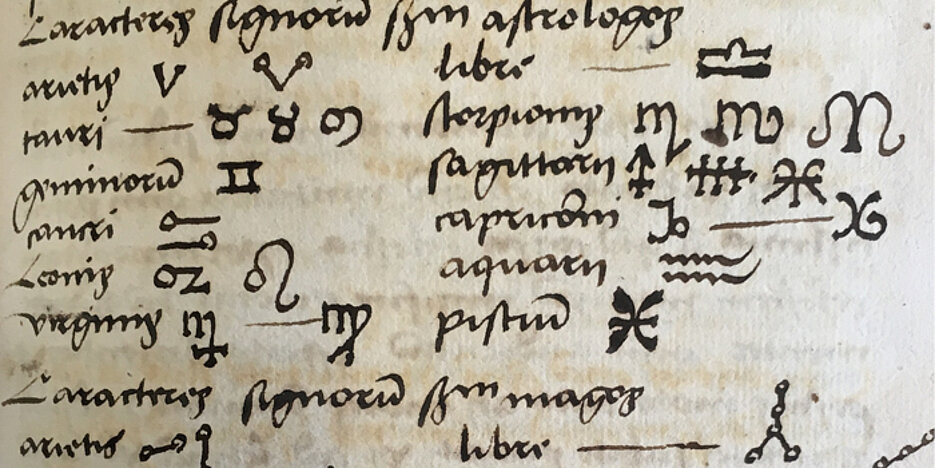 Caracteres signorū scdm astrologos
arietis ♈ ♈ libre — ♎
tauri — ♉ ♉ ♉ scorpionis ♏ ♏ ♏
geminorū ♊ sagittarii ♐
cancri ♋ capricorni ♑ — ♑
Leonis ♌ ♌ aquarii ♒
virginis ♍ — ♍ pisciū ♓
Caracteres signorū scdm magos
arietis libre —